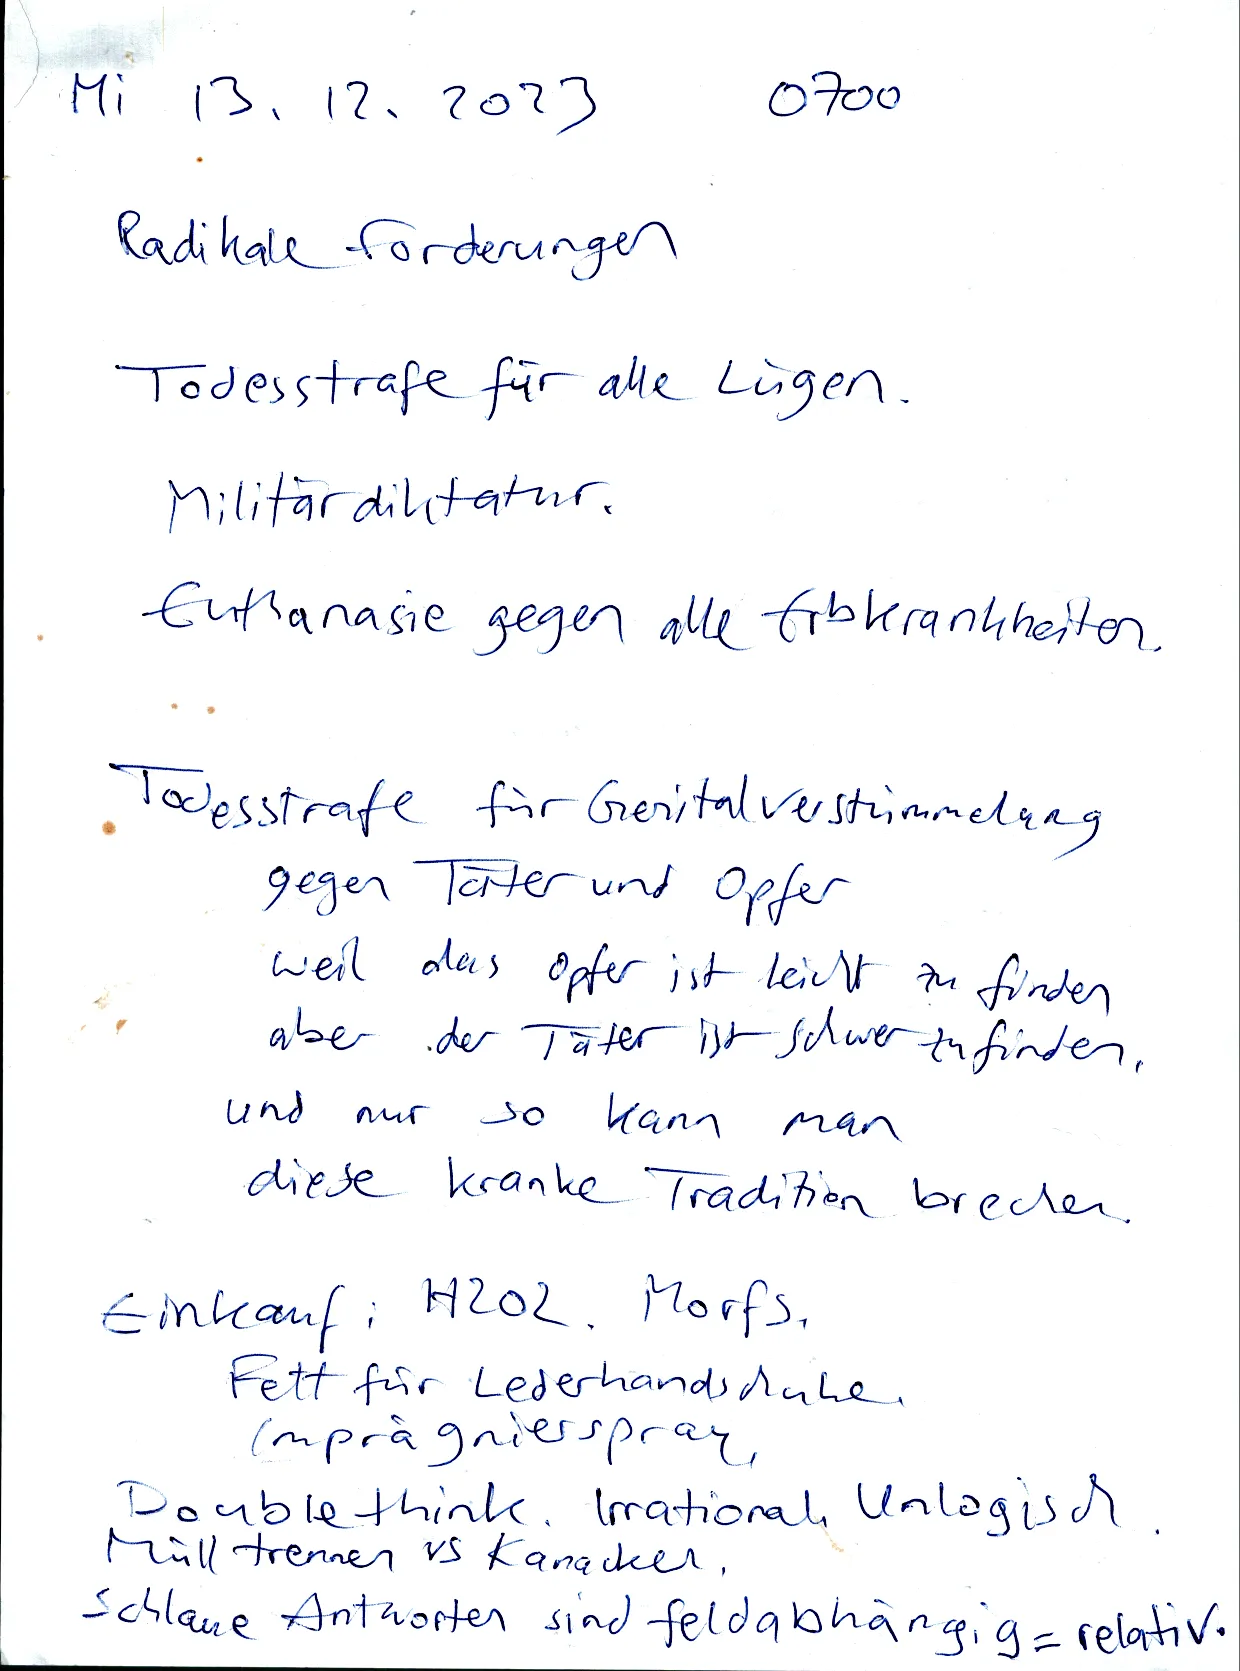 Mi 13. 12. 2023 0700
Radikale Forderungen
Todesstrafe für alle Lügen.
Militärdiktatur.
Euthanasie gegen alle Erbkrankheiten.
Todesstrafe für Genitalverstümmelung
gegen Täter und Opfer
weil das Opfer ist leicht zu finden
aber der Täter ist schwer zu finden,
und nur so kann man
diese kranke Tradition brechen.
Einkauf: H2O2. Morfs.
Fett für Lederhandschuhe.
Imprägnierspray,
Doublethink. Irrational, Unlogisch.
Müll trennen vs Kanacken.
Schlaue Antworten sind feldabhängig = relativ.